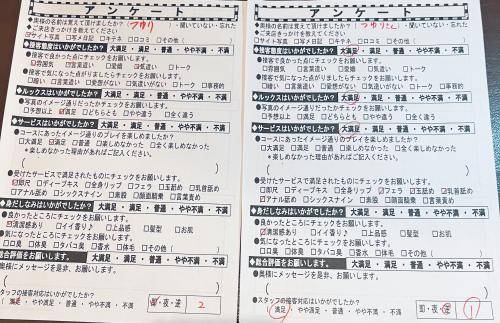 アンケート
◆奥様の名前は覚えて頂けましたか?(つかり)・聞いていない・忘れた
◆ご来店きっかけを教えてください。
☑サイト写真 □写メ日記 □キテネ □口コミ □その他( )
◆接客態度はいかがでしたか? 大満足・満足・普通・やや不満・不満
●接客で良かった点にチェックをお願いします。
□雰囲気 □言葉遣い □愛嬌 □気遣い □トーク
●接客で気になった点がありましたらチェックをお願いします。
□暗い □言葉遣い □愛想がない □気遣い □トーク □事務的
◆ルックスはいかがでしたか? 大満足・満足・普通・やや不満・不満
●写真のイメージ通りだったかチェックをお願いします。
□予想以上 ☑満足 □どちらとも □やや違う □全く違う
◆サービスはいかがでしたか? 大満足・満足・普通・やや不満・不満
●コースにあったイメージ通りのプレイを楽しめましたか?
□大満足 ☑満足 □普通 □楽しめなかった □全く楽しめなかった
*楽しめなかった理由があればご記入ください。
( )
●受けたサービスで満足されたものにチェックをお願いします。
☑即尺 □ディープキス □全身リップ □フェラ □玉舐め □乳首舐め
□アナル舐め □シックスナイン □素股 □顔面騎乗 □言葉責め
◆身だしなみはいかがでしたか? 大満足・満足・普通・やや不満・不満
●良かったところにチェックをお願いします。
☑清潔感あり □イイ香り♪ □上品感 □髪型 □お肌
●気になったところにチェックをお願いします。
□口臭 □体臭 □タバコ臭 □香水 □体毛 □その他( )
総合評価をお願いします。 大満足・満足・普通・やや不満・不満
奥様にメッセージを是非、お願いします。
( )
スタッフの接客対応はいかがでしたか?
満足・やや満足・普通・やや不満・不満
即・夜・逆 2
アンケート
◆奥様の名前は覚えて頂けましたか?( )・聞いていない・忘れた
◆ご来店きっかけを教えてください。
□サイト写真 □写メ日記 □キテネ □口コミ □その他( )
◆接客態度はいかがでしたか? 大満足・満足・普通・やや不満・不満
●接客で良かった点にチェックをお願いします。
□雰囲気 □言葉遣い □愛嬌 □気遣い □トーク
●接客で気になった点がありましたらチェックをお願いします。
□暗い □言葉遣い □愛想がない □気遣い □トーク □事務的
◆ルックスはいかがでしたか? 大満足・満足・普通・やや不満・不満
●写真のイメージ通りだったかチェックをお願いします。
□予想以上 □満足 □どちらとも □やや違う □全く違う
◆サービスはいかがでしたか? 大満足・満足・普通・やや不満・不満
●コースにあったイメージ通りのプレイを楽しめましたか?
□大満足 ☑満足 □普通 □楽しめなかった □全く楽しめなかった
*楽しめなかった理由があればご記入ください。
( )
●受けたサービスで満足されたものにチェックをお願いします。
☑即尺 □ディープキス □全身リップ ☑フェラ □玉舐め ☑乳首舐め
☑アナル舐め □シックスナイン □素股 □顔面騎乗 □言葉責め
◆身だしなみはいかがでしたか? 大満足・満足・普通・やや不満・不満
●良かったところにチェックをお願いします。
☑清潔感あり □イイ香り♪ □上品感 □髪型 □お肌
●気になったところにチェックをお願いします。
□口臭 □体臭 □タバコ臭 □香水 □体毛 □その他( )
◆総合評価をお願いします。 大満足・満足・普通・やや不満・不満
●奥様にメッセージを是非、お願いします。
( )
●スタッフの接客対応はいかがでしたか?
満足・やや満足・普通・やや不満・不満
即・夜・逆 1